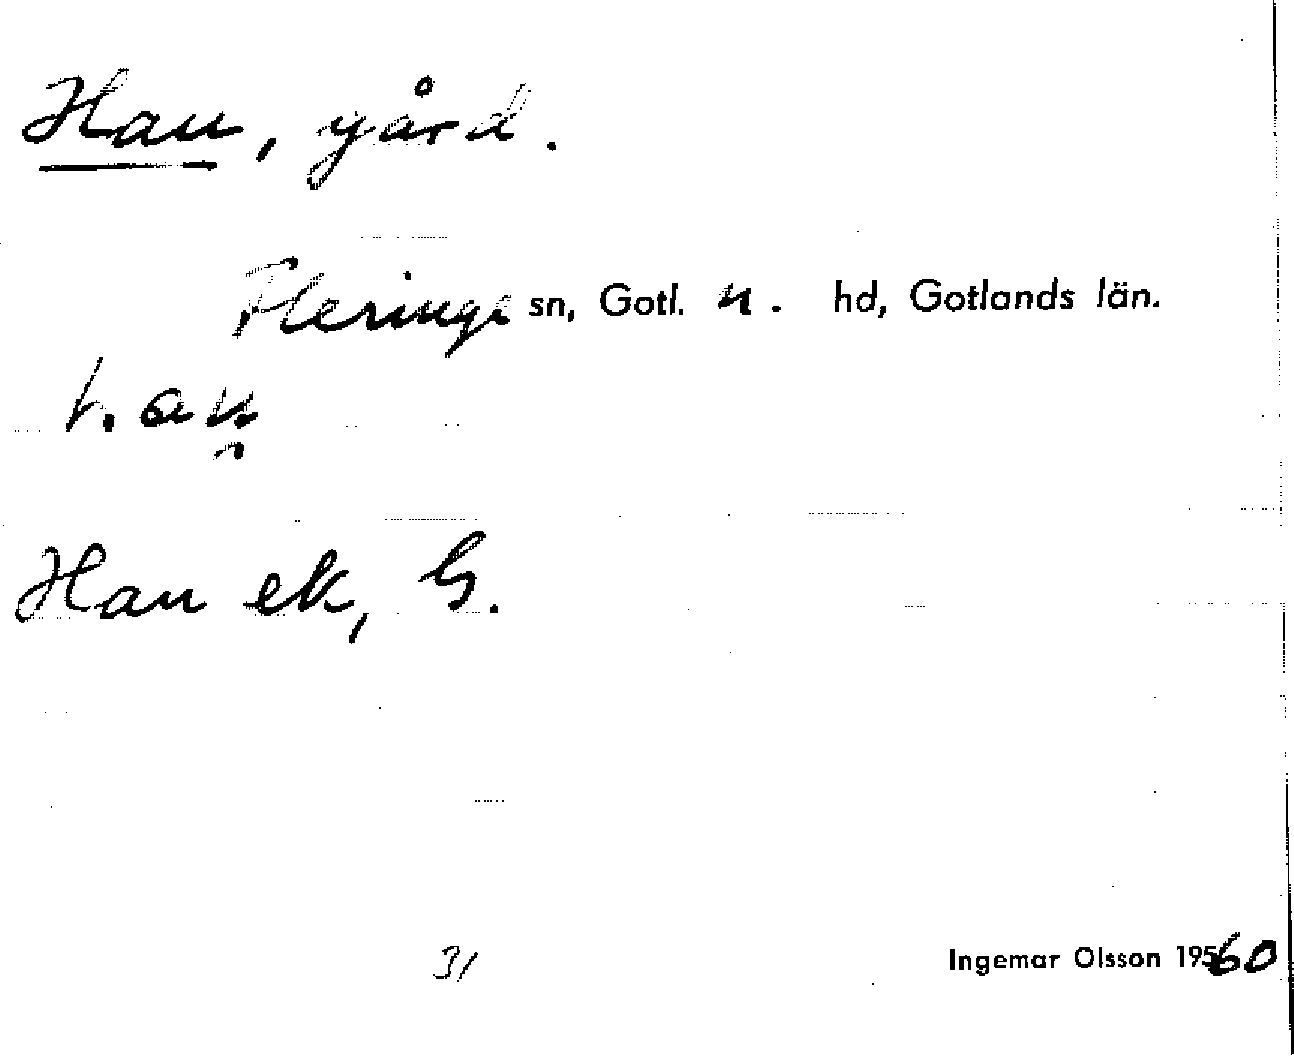 Hau, gård.
Fleringe sn, Gotl. n. hd, Gotlands län.
Hau ek, G.
31 Ingemar Olsson 1960